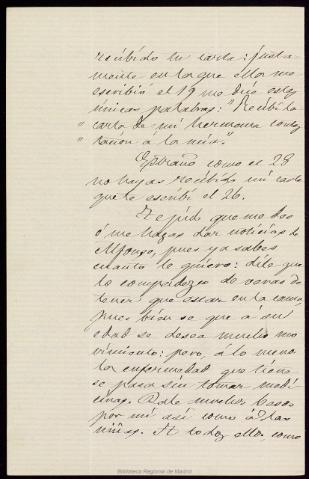 recibido tu carta: justa-
mente en la que ellos me
escribió el 19 me dice estas
únicas palabras: "Recibí la
" carta de mi hermana contes
" tación á la mía."
Extraño como el 28
no hayas recibido mi carta
que te escribí el 26.
Te pido que me des
ó me hagas dar noticias de
Alfonso, pues ya sabes
cuanto le quiero: dile que
le compadezco de veras de
tener que estar en la cama
pues bien se que á su
edad se desea mucho mo
vimiento: pero, á lo menos
la enfermedad que tiene
se pasa sin tomar medi
cinas. Dale muchos besos
por mí así como á las
niñas. A todos ellos como
Biblioteca Regional de Madrid